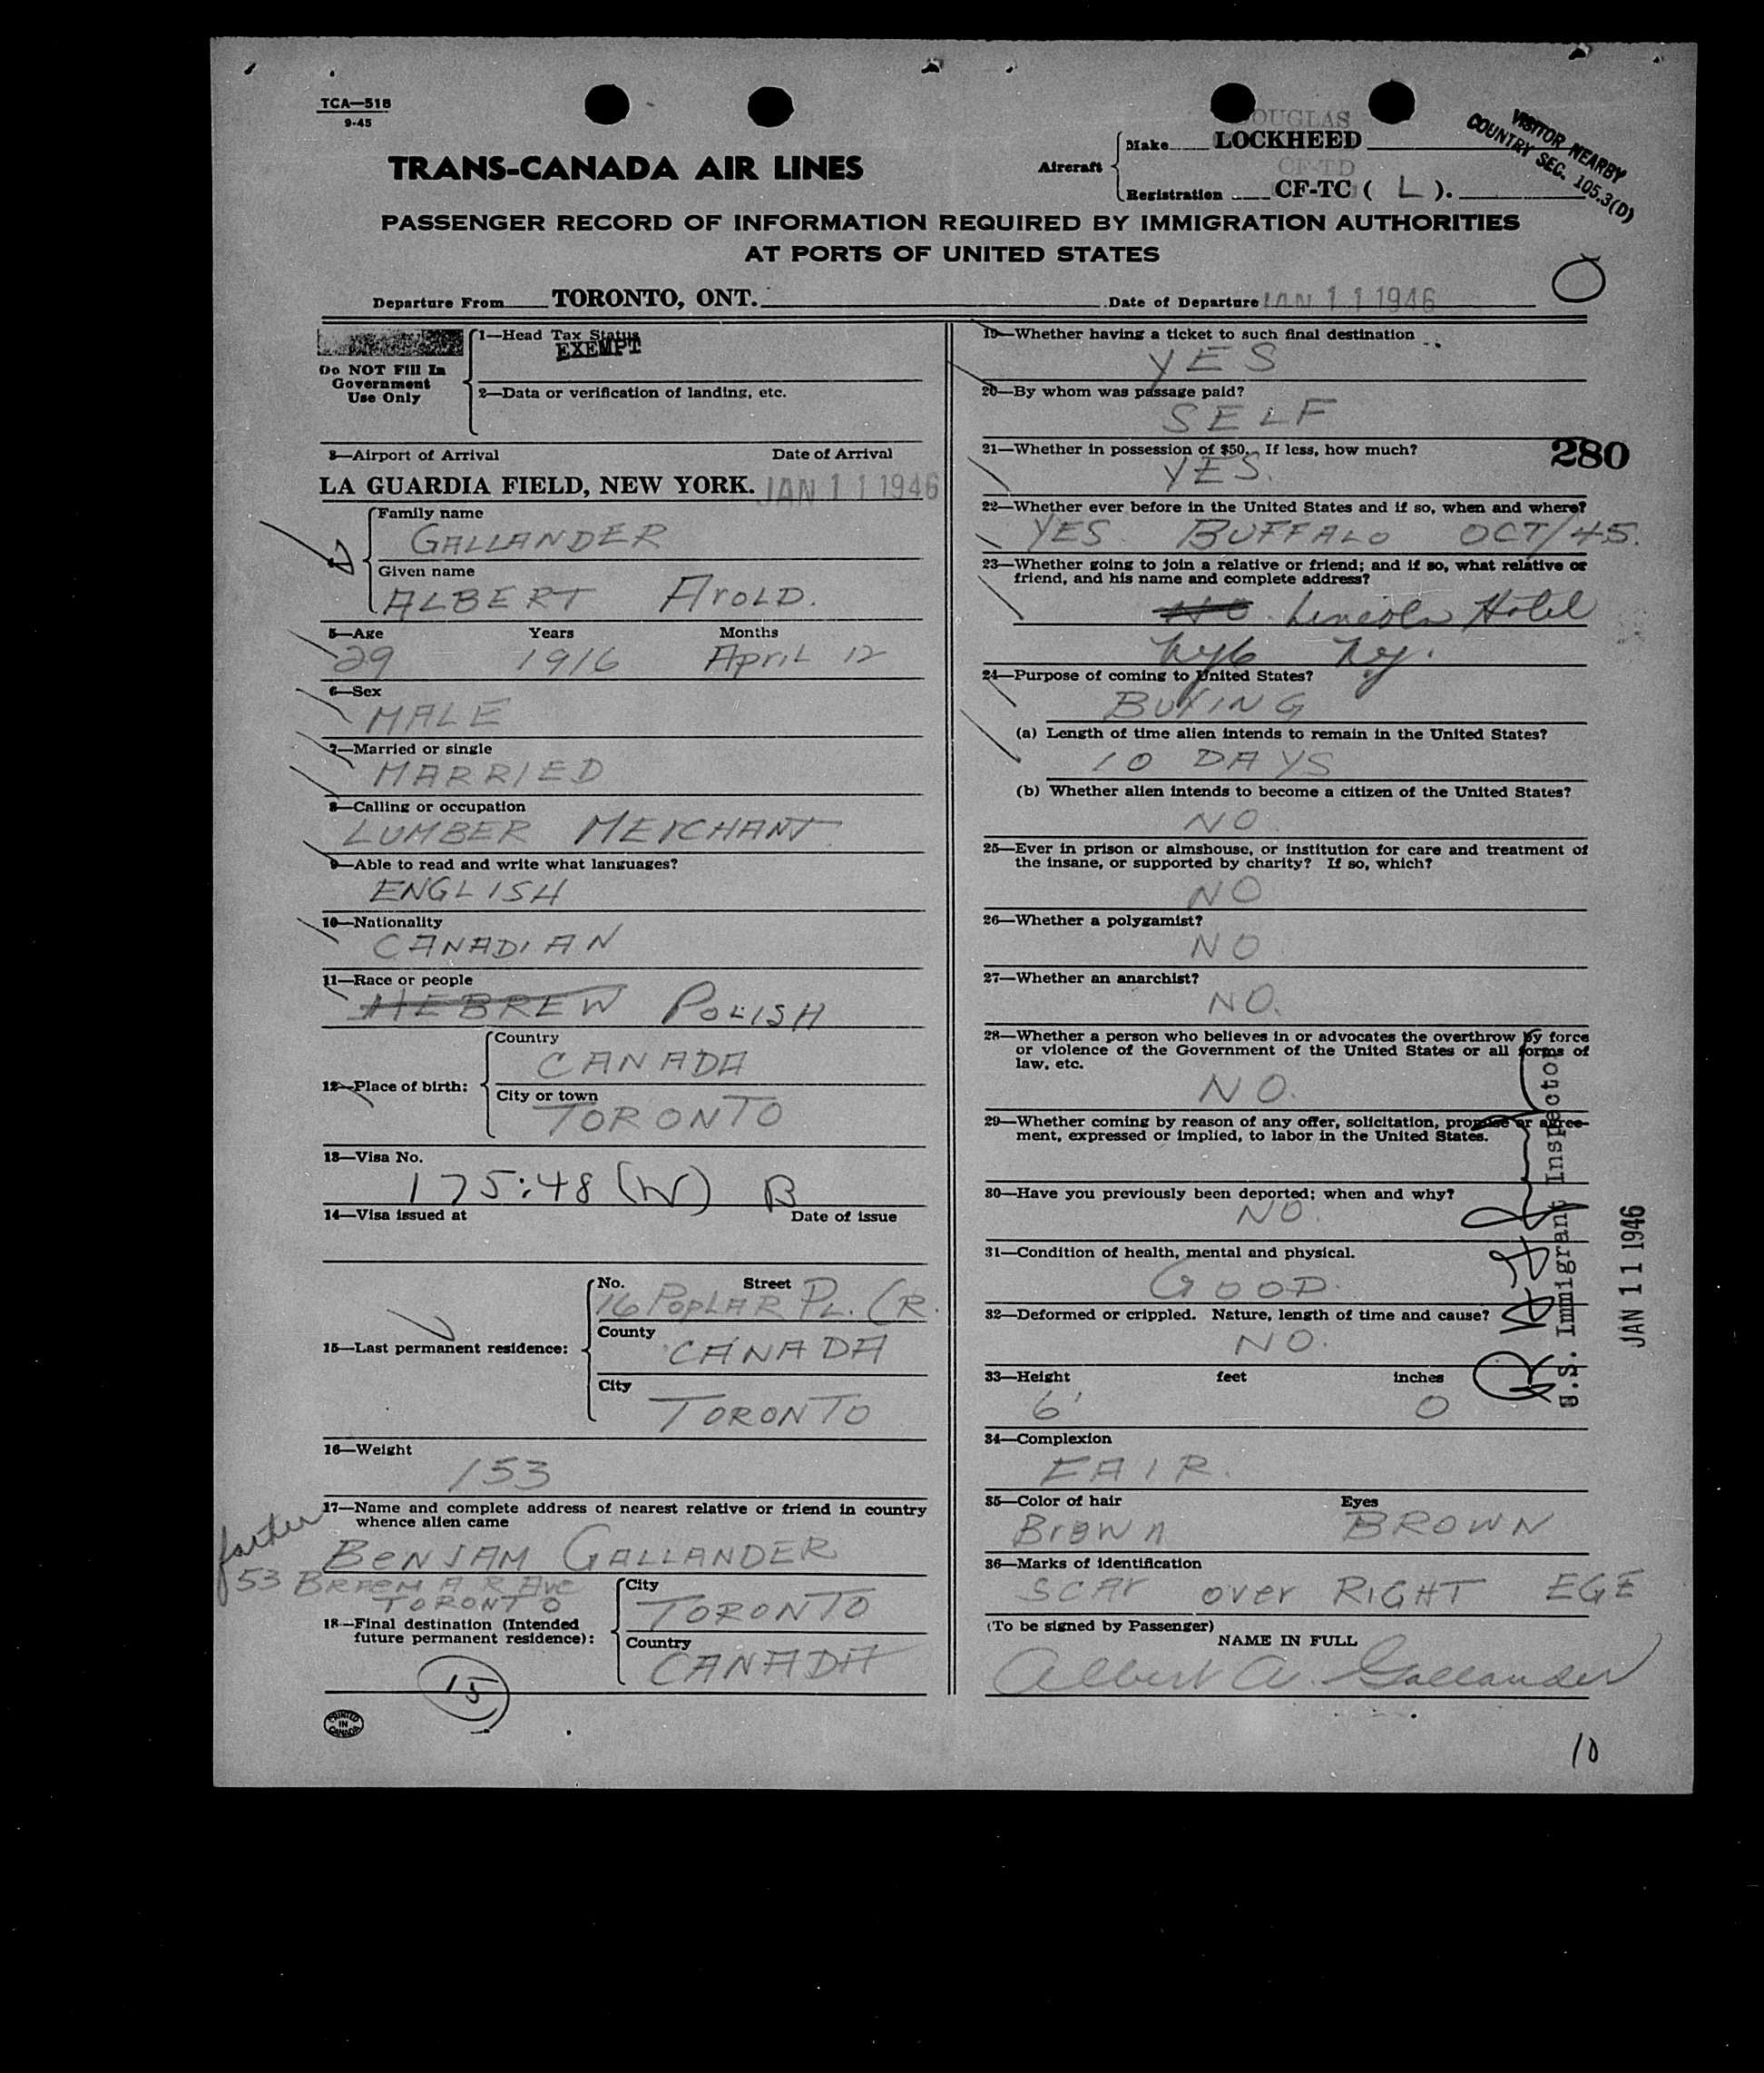 TCA—518
9-45
TRANS-CANADA AIR LINES
DOUGLAS
Aircraft
Make LOCKHEED
CF-TD
Registration CF-TC ( L ).
VISITOR NEARBY
COUNTRY SEC. 105.3(D)
PASSENGER RECORD OF INFORMATION REQUIRED BY IMMIGRATION AUTHORITIES
AT PORTS OF UNITED STATES
Departure From TORONTO, ONT. Date of Departure JAN 11 1946
Do NOT Fill In
Government
Use Only
1—Head Tax Status
EXEMPT
2—Data or verification of landing, etc.
3—Airport of Arrival Date of Arrival
LA GUARDIA FIELD, NEW YORK. JAN 11 1946
Family name
GALLANDER
Given name
ALBERT AroLD.
5—Age Years Months
29 1916 April 12
6—Sex
MALE
7—Married or single
MARRIED
8—Calling or occupation
LUMBER MErCHANT
9—Able to read and write what languages?
ENGLISH
10—Nationality
CANADIAN
11—Race or people
HEBREW POLISH
12—Place of birth:
Country
CANADA
City or town
TORONTO
13—Visa No.
175:48 (W) B
14—Visa issued at Date of issue
15—Last permanent residence:
No. Street
16 POPLAR PL. CR.
County
CANADA
City
TORONTO
16—Weight
153
17—Name and complete address of nearest relative or friend in country
whence alien came
father
BENJAM GALLANDER
53 Ave
TORONTO
18—Final destination (Intended
future permanent residence):
City
TORONTO
Country
CANADA
15
PRINTED
IN
CANADA
19—Whether having a ticket to such final destination
YES
20—By whom was passage paid?
SELF
21—Whether in possession of $50. If less, how much?
YES.
280
22—Whether ever before in the United States and if so, when and where?
YES. BUFFALO OCT/45.
23—Whether going to join a relative or friend; and if so, what relative or
friend, and his name and complete address?
NO Lincoln Hotel
NYC NY.
24—Purpose of coming to United States?
BUYING
(a) Length of time alien intends to remain in the United States?
10 DAYS
(b) Whether alien intends to become a citizen of the United States?
NO.
25—Ever in prison or almshouse, or institution for care and treatment of
the insane, or supported by charity? If so, which?
NO
26—Whether a polygamist?
NO
27—Whether an anarchist?
NO.
28—Whether a person who believes in or advocates the overthrow by force
or violence of the Government of the United States or all forms of
law, etc.
NO.
29—Whether coming by reason of any offer, solicitation, promise or agree-
ment, expressed or implied, to labor in the United States.
30—Have you previously been deported; when and why?
NO.
31—Condition of health, mental and physical.
GOOD.
32—Deformed or crippled. Nature, length of time and cause?
NO.
33—Height feet inches
6' 0
34—Complexion
FAIR.
35—Color of hair Eyes
Brown BROWN
36—Marks of identification
SCAr over RIGHT EGE
(To be signed by Passenger)
NAME IN FULL
Albert A. Gallander
U.S. Immigrant Inspector
JAN 11 1946
10